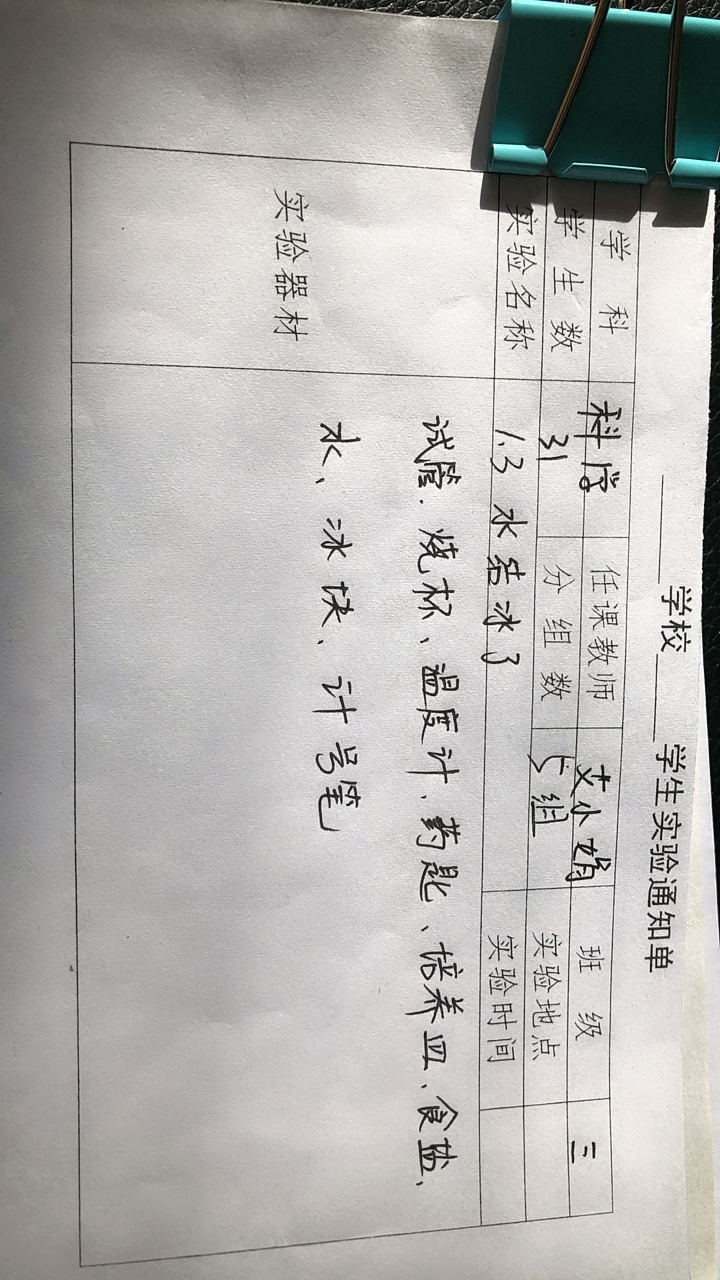 ______学校______学生实验通知单
学 科 科学 任课教师 艾小娟 班 级 三
学 生 数 31 分 组 数 5组 实验地点
实验名称 1.3 水结冰了 实验时间
实验器材 试管、烧杯、温度计、药匙、培养皿、食盐、
水、冰块、计号笔